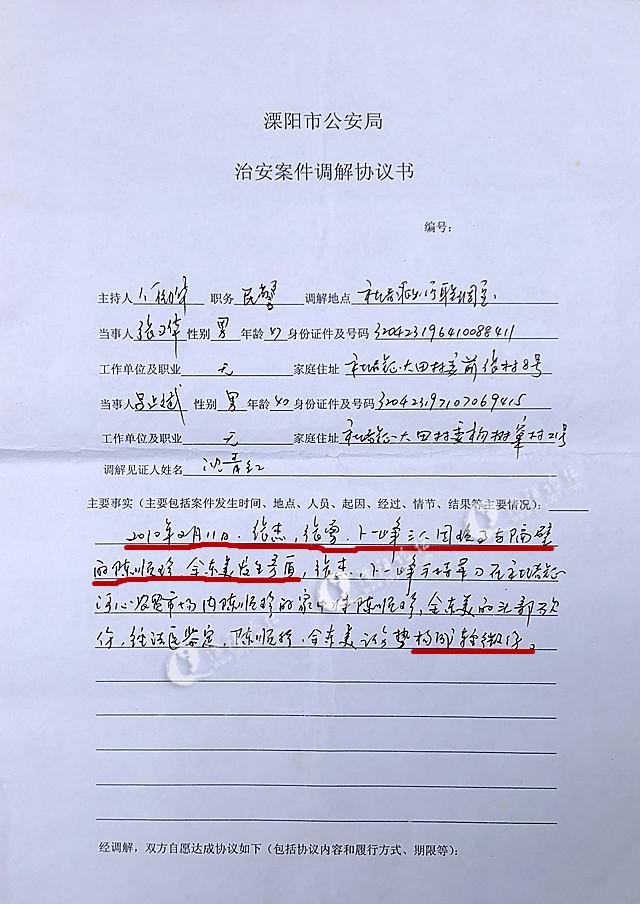 溧阳市公安局
治安案件调解协议书
编号：
主持人 职务 民警 调解地点
当事人 性别 男 年龄 身份证件及号码 320423196410088411
工作单位及职业 无 家庭住址 大田村委前 村8号
当事人 性别 男 年龄 40 身份证件及号码 320423197107069415
工作单位及职业 无 家庭住址 大田村委 村21号
调解见证人姓名 沈青红
主要事实（主要包括案件发生时间、地点、人员、起因、经过、情节、结果等主要情况）：
2010年2月11日，张杰，张勇，卜一峰三人因 与隔壁
的陈顺珍、余东美发生矛盾，张杰，卜一峰手持 刀在
市场内陈顺珍的家中 陈顺珍，余东美的头部 
伤，经法医鉴定，陈顺珍、余东美 势构成轻微伤。
经调解，双方自愿达成协议如下（包括协议内容和履行方式、期限等）：